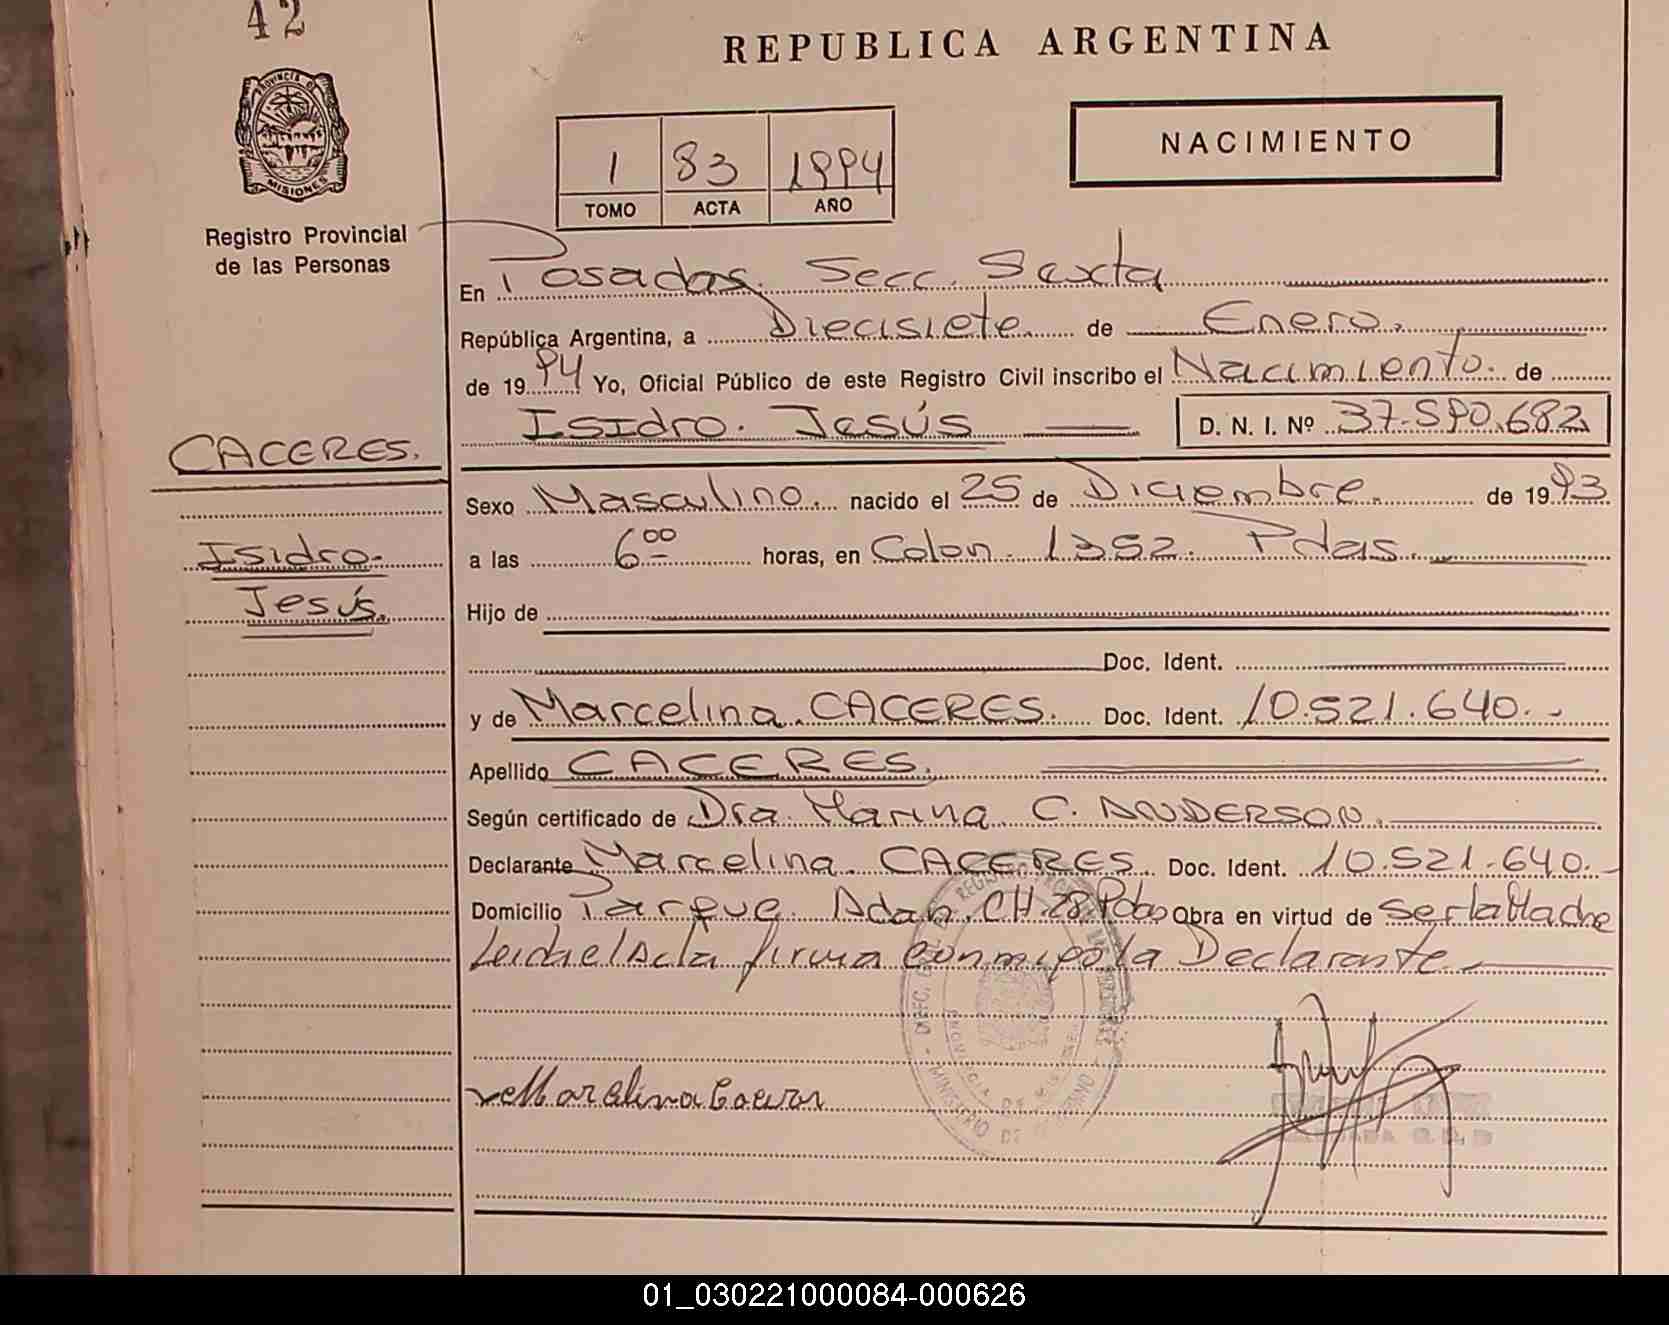 42
REPUBLICA ARGENTINA
NACIMIENTO
1 83 1994
TOMO ACTA AÑO
PROVINCIA DE MISIONES
Registro Provincial
de las Personas
En Posadas. Secc. Sexta
República Argentina, a Diecisiete de Enero.
de 1994 Yo, Oficial Público de este Registro Civil inscribo el Nacimiento. de
Isidro. Jesús D. N. I. Nº 37.590.682
CACERES.
Isidro.
Jesús.
Sexo Masculino. nacido el 25 de Diciembre. de 1993
a las 6ºº horas, en Colon. 1352. Pdas.
Hijo de
Doc. Ident.
y de Marcelina. CACERES. Doc. Ident. 10.521.640.-
Apellido CACERES.
Según certificado de Dra. Marina C. ANDERSON.
Declarante Marcelina. CACERES. Doc. Ident. 10.521.640.-
Domicilio Parque. Adam. CH.28 Pdas Obra en virtud de ser la Madre
Leida el Acta firma conmigo la Declarante.
Marcelina Caceres
MINISTERIO DE GOBIERNO
PROVINCIA DE MISIONES
01_030221000084-000626